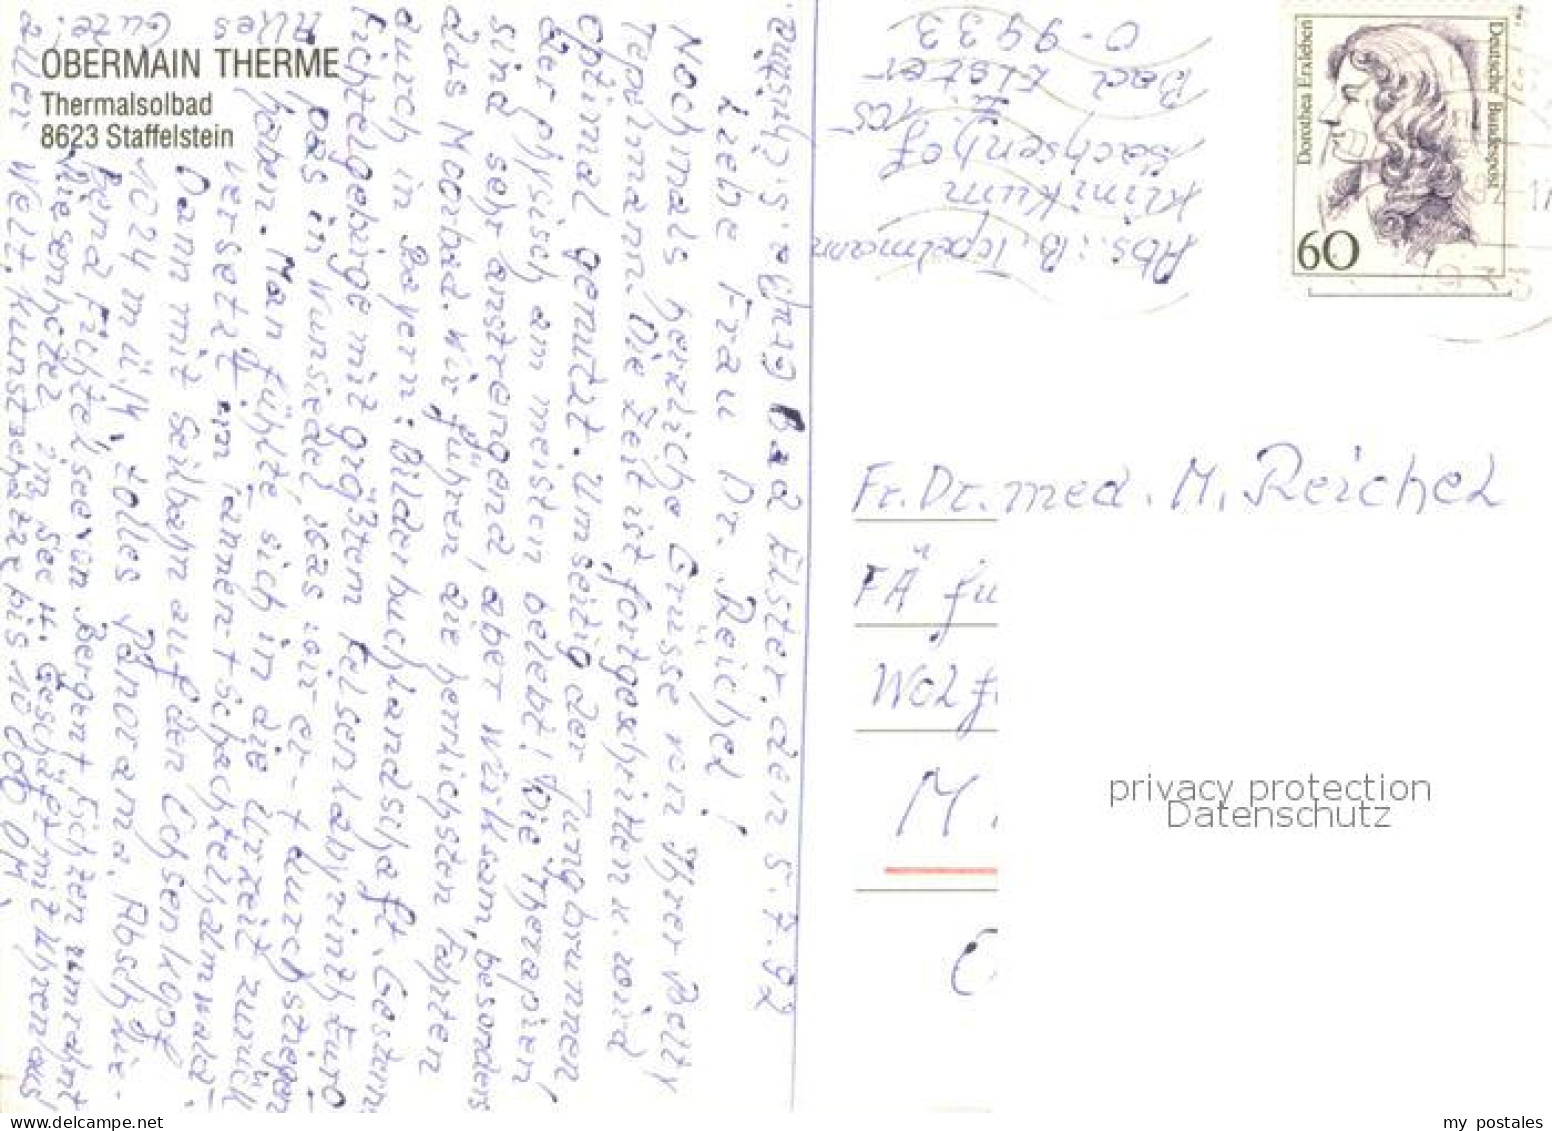 OBERMAIN THERME
Thermalsolbad
8623 Staffelstein
Bad Elster, den 5.7.92
Liebe Frau Dr. Reichel!
Nochmals herzliche Grüsse von Ihrer Betty
Tepelmann. Die Zeit ist fortgeschritten u. wird
optimal genutzt. Umseitig der Jungbrunnen,
der physisch am meisten belebt! Die Therapien
sind sehr anstrengend, aber wirksam, besonders
das Moorbad. Wir führen die herrlichsten Fahrten
durch in Bayern: Bilderbuchlandschaft. Gestern
Fichtelgebirge mit größtem Felsenlabyrinth Euro
pas in Wunsiedel, was wir er-+ durchstiegen
haben. Man fühlte sich in die Urzeit zurück
versetzt im Tannen-+ Schachtelhalmwald.
Dann mit Seilbahn auf den Ochsenkopf
1024 m ü.M. tolles Panorama. Abschlie-
ßend Fichtelsee von Bergen + Fichten umrahmt
Riesenhotel im See u. Geschäft mit Uhren aus
aller Welt, Kunstuhren bis 10 000 DM.
Alles
Gute!
Abs.: B. Tepelmann
Klinikum
Sachsenhof
Zi. 105
Bad Elster
O-9933
Deutsche Bundespost
Dorothea Erxleben
60
Fr. Dr. med. M. Reichel
FÄ fü
Wolf
M.
privacy protection
Datenschutz
my postales